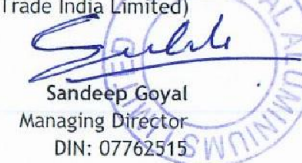 Trade India Limited)
Sandeep Goyal
Managing Director
DIN: 07762515